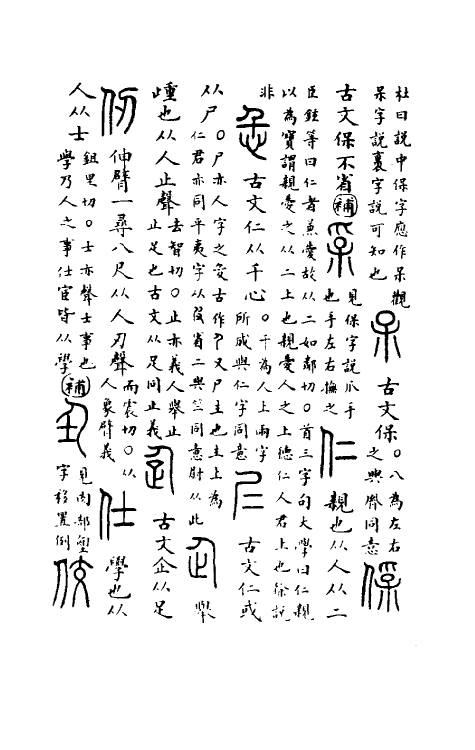 杜曰說中保字應作呆觀
呆字說裏字說可知也
呆 古文保
○八為左右
之與齊同意
保
古文保不省 補
見保字說爪手
也手左右撫之
仁 親也从人从二
臣鉉等曰仁者兼愛故从二如鄰切○首三字句大學曰仁親
以為寶謂親愛之从二上也親愛人之上德仁人君上也徐說
非
忎 古文仁从千心
○千為人上兩字
所成與仁字同意
𡰥 古文仁或
从尸
○尸亦人字之變古作又尸主也主上為
仁君亦同平夷字从省二與竺同意尉从此
企 舉
踵也从人止聲
去智切○止亦義人舉止
止足也古文从足同止義
古文企从足
仞 伸臂一尋八尺从人刃聲
而震切○从
人象臂義
仕 學也从
人从士
鉏里切○士亦聲士事也
學乃人之事仕宦皆从學
補
見肉部
字移置倒